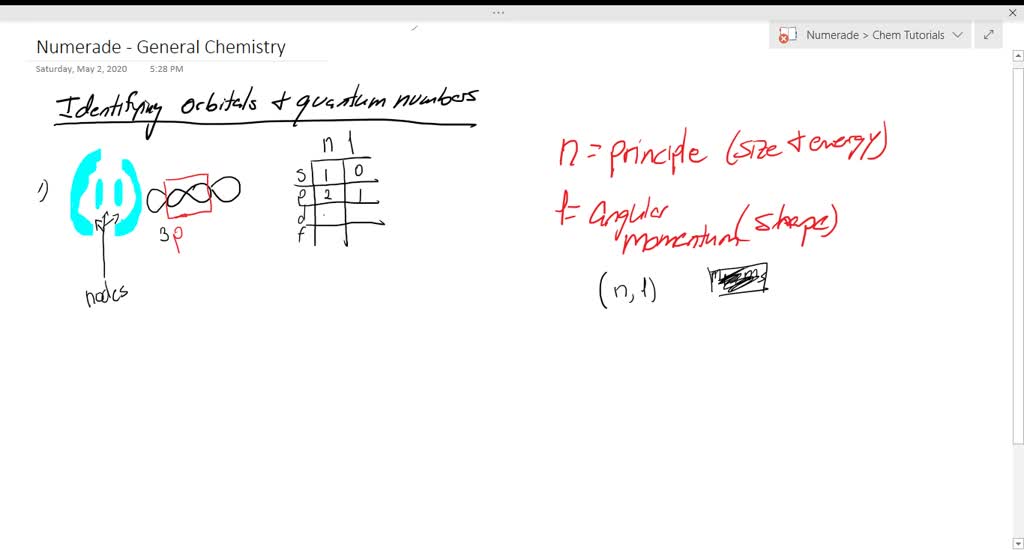 Numerade > Chem Tutorials
Numerade - General Chemistry
Saturday, May 2, 2020 5:28 PM
Identifying orbitals + quantum numbers
1)
3p
nodes
n l
s 1 0
p 2 1
d
f
n = principle (size + energy)
l = angular momentum (shape)
(n, l)